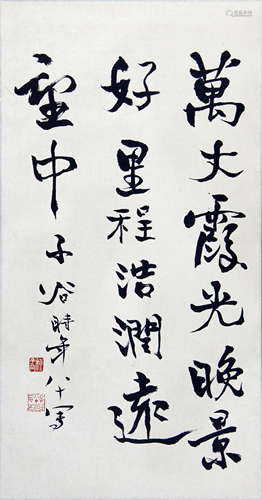 萬丈霞光晚景
好里程浩濶遠
望中
子谷時年八十寫